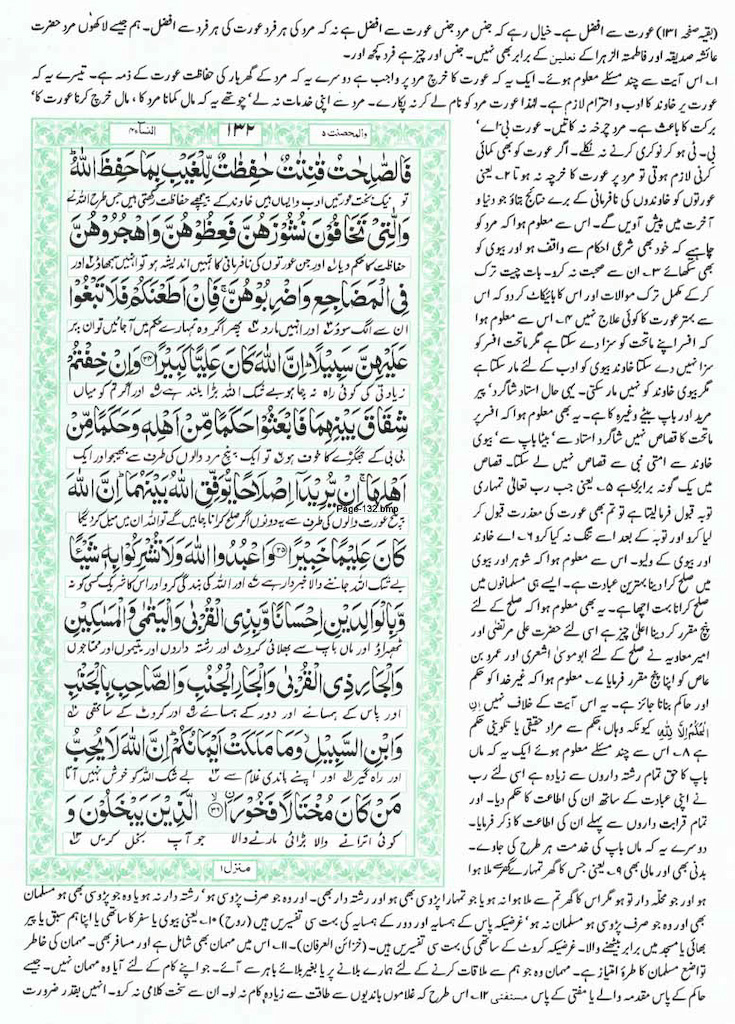 (بقیہ صفحہ ۱۳۱) عورت سے افضل ہے۔ خیال رہے کہ جنس مرد جنس عورت سے افضل ہے نہ کہ مرد کی ہر فرد عورت کی ہر فرد سے افضل۔ ہم جیسے لاکھوں مرد حضرت
عائشہ صدیقہ اور فاطمتہ الزہرا کے نعلین کے برابر بھی نہیں۔ جنس اور چیز ہے فرد کچھ اور۔
۱۔ اس آیت سے چند مسئلے معلوم ہوئے۔ ایک یہ کہ عورت کا خرچ مرد پر واجب ہے دوسرے یہ کہ مرد کے گھر بار کی حفاظت عورت کے ذمہ ہے۔ تیسرے یہ کہ
عورت پر خاوند کا ادب و احترام لازم ہے۔ لہذا عورت مرد کو نام لے کر نہ پکارے۔ مرد سے اپنی خدمات نہ لے' چوتھے یہ کہ مال کمانا مرد کا' مال خرچ کرنا عورت کا'
برکت کا باعث ہے۔ مرد چرخہ نہ کاتیں۔ عورت بی اے'
بی۔ ٹی ہو کر نوکری کرنے نہ نکلے۔ اگر عورت کو بھی کمائی
کرنی لازم ہوتی تو مرد پر عورت کا خرچہ نہ ہوتا ۲۔ یعنی
عورتوں کو خاوندوں کی نافرمانی کے برے نتائج بتاؤ جو دنیا و
آخرت میں پیش آویں گے۔ اس سے معلوم ہوا کہ مرد کو
چاہیے کہ خود بھی شرعی احکام سے واقف ہو اور بیوی کو
بھی سکھائے ۳۔ ان سے صحبت نہ کرو۔ بات چیت ترک
کر کے مکمل ترک موالات اور اس کا بائیکاٹ کر دو کہ اس
سے بہتر عورت کا کوئی علاج نہیں ۴۔ اس سے معلوم ہوا
کہ افسر اپنے ماتحت کو سزا دے سکتا ہے مگر ماتحت افسر کو
سزا نہیں دے سکتا خاوند بیوی کو ادب کے لئے مار سکتا ہے
مگر بیوی خاوند کو نہیں مار سکتی۔ یہی حال استاد شاگرد' پیر
مرید اور باپ بیٹے وغیرہ کا ہے۔ یہ بھی معلوم ہوا کہ افسر پر
ماتحت کا قصاص نہیں شاگرد استاد سے' بیٹا باپ سے' بیوی
خاوند سے امتی نبی سے قصاص نہیں لے سکتا۔ قصاص
میں یک گونہ برابری ہے ۵۔ یعنی جب رب تعالٰی تمہاری
توبہ قبول فرمالیتا ہے تو تم بھی عورت کی معذرت قبول کر
لیا کرو اور توبہ کے بعد اسے تنگ نہ کیا کرو ۶۔ اے خاوند
اور بیوی کے ولیو۔ اس سے معلوم ہوا کہ شوہر اور بیوی
میں صلح کرا دینا بہترین عبادت ہے۔ ایسے ہی مسلمانوں میں
صلح کرانا بہت اچھا ہے۔ یہ بھی معلوم ہوا کہ صلح کے لئے
پنچ مقرر کر دینا اعلیٰ چیز ہے اسی لئے حضرت علی مرتضی اور
امیر معاویہ نے صلح کے لئے ابوموسیٰ اشعری اور عمرو بن
عاص کو اپنا پنچ مقرر فرمایا ۷۔ معلوم ہوا کہ غیر خدا کو حکم
اور حاکم بنانا جائز ہے۔ یہ اس آیت کے خلاف نہیں اِنِ
الْحُكْمُ اِلَّا لِلّٰهِ کیونکہ وہاں حکم سے مراد حقیقی یا تکوینی حکم
ہے ۸۔ اس سے چند مسئلے معلوم ہوئے ایک یہ کہ ماں
باپ کا حق تمام رشتہ داروں سے زیادہ ہے اسی لئے رب
نے اپنی عبادت کے ساتھ ان کی اطاعت کا حکم دیا۔ اور
تمام قرابت داروں سے پہلے ان کی اطاعت کا ذکر فرمایا۔
دوسرے یہ کہ ماں باپ کی خدمت ہر طرح کی جاوے۔
بدنی بھی اور مالی بھی ۹۔ یعنی جس کا گھر تمہارے گھر سے ملا ہوا
والمحصنت ۵ ۱۳۲ النساء ۴
فَالصّٰلِحٰتُ قٰنِتٰتٌ حٰفِظٰتٌ لِّلْغَيْبِ بِمَا حَفِظَ اللّٰهُ
تو نیک بخت عورتیں ادب والیاں ہیں خاوند کے پیچھے حفاظت رکھتی ہیں جس طرح اللہ نے
وَالّٰتِيْ تَخَافُوْنَ نُشُوْزَهُنَّ فَعِظُوْهُنَّ وَاهْجُرُوْهُنَّ
حفاظت کا حکم دیا اور جن عورتوں کی نافرمانی کا تمہیں اندیشہ ہو تو انہیں سمجھاؤ اور
فِي الْمَضَاجِعِ وَاضْرِبُوْهُنَّ فَاِنْ اَطَعْنَكُمْ فَلَا تَبْغُوْا
ان سے الگ سوؤ اور انہیں مارو پھر اگر وہ تمہارے حکم میں آجائیں تو ان پر
عَلَيْهِنَّ سَبِيْلًا اِنَّ اللّٰهَ كَانَ عَلِيًّا كَبِيْرًا ۳۴ وَاِنْ خِفْتُمْ
زیادتی کی کوئی راہ نہ چاہو بے شک اللہ بلند بڑا ہے اور اگر تم کو میاں
شِقَاقَ بَيْنِهِمَا فَابْعَثُوْا حَكَمًا مِّنْ اَهْلِهٖ وَحَكَمًا مِّنْ
بی بی کے جھگڑے کا خوف ہو تو ایک پنچ مرد والوں کی طرف سے بھیجو اور ایک
اَهْلِهَا اِنْ يُّرِيْدَا اِصْلَاحًا يُّوَفِّقِ اللّٰهُ بَيْنَهُمَا اِنَّ اللّٰهَ
Page-132.bmp
پنچ عورت والوں کی طرف سے یہ دونوں اگر صلح کرانا چاہیں گے تو اللہ ان میں میل کر دیگا
كَانَ عَلِيْمًا خَبِيْرًا ۳۵ وَاعْبُدُوا اللّٰهَ وَلَا تُشْرِكُوْا بِهٖ شَيْئًا
بے شک اللہ جاننے والا خبردار ہے اور اللہ کی بندگی کرو اور اس کا شریک کسی کو نہ
وَّبِالْوَالِدَيْنِ اِحْسَانًا وَّبِذِي الْقُرْبٰى وَالْيَتٰمٰى وَالْمَسٰكِيْنِ
ٹھہراؤ اور ماں باپ سے بھلائی کرو اور رشتہ داروں اور یتیموں اور محتاجوں
وَالْجَارِ ذِي الْقُرْبٰى وَالْجَارِ الْجُنُبِ وَالصَّاحِبِ بِالْجَنْۢبِ
اور پاس کے ہمسائے اور دور کے ہمسائے اور کروٹ کے ساتھی
وَابْنِ السَّبِيْلِ وَمَا مَلَكَتْ اَيْمَانُكُمْ اِنَّ اللّٰهَ لَا يُحِبُّ
اور راہ گیر اور اپنے باندی غلام سے بے شک اللہ کو خوش نہیں آتا
مَنْ كَانَ مُخْتَالًا فَخُوْرًا ۳۶ الَّذِيْنَ يَبْخَلُوْنَ وَ
کوئی اترانے والا بڑائی مارنے والا جو آپ بخل کریں
منزل ۱
ہو اور جو محلہ دار تو ہو مگر اس کا گھر تم سے ملا ہوا نہ ہو یا جو تمہارا پڑوسی بھی ہو اور رشتہ دار بھی۔ اور وہ جو صرف پڑوسی ہو' رشتہ دار نہ ہو یا وہ جو پڑوسی بھی ہو مسلمان
بھی اور وہ جو صرف پڑوسی ہو مسلمان نہ ہو' غرضیکہ پاس کے ہمسایہ اور دور کے ہمسایہ کی بہت سی تفسیریں ہیں (روح) ۱۰۔ یعنی بیوی یا سفر کا ساتھی یا اپنا ہم سبق یا پیر
بھائی یا مسجد میں برابر بیٹھنے والا۔ غرضیکہ کروٹ کے ساتھی کی بہت سی تفسیریں ہیں۔ (خزائن العرفان)۔ ۱۱۔ اس میں مہمان بھی شامل ہے اور مسافر بھی۔ مہمان کی خاطر
تواضع مسلمان کا طرۂ امتیاز ہے۔ مہمان وہ جو ہم سے ملاقات کرنے کے لئے ہمارے بلانے پر یا بغیر بلائے باہر سے آئے۔ جو اپنے کام کے لئے آیا وہ مہمان نہیں۔ جیسے
حاکم کے پاس مقدمہ والے یا مفتی کے پاس مستفتی ۱۲۔ اس طرح کہ غلاموں باندیوں سے طاقت سے زیادہ کام نہ لو۔ ان سے سخت کلامی نہ کرو۔ انہیں بقدر ضرورت